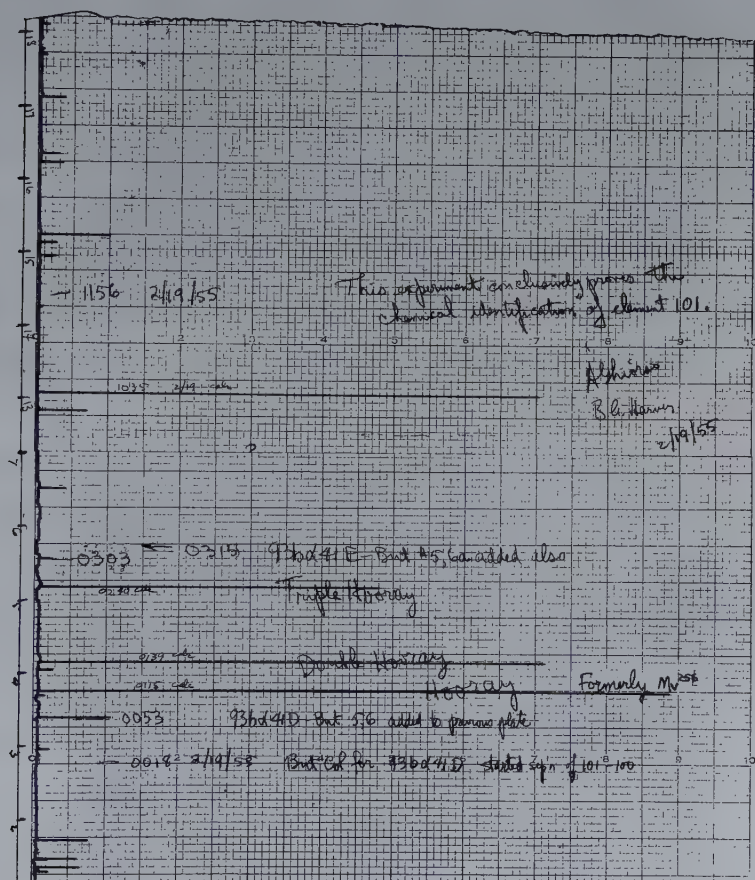 1156 2/19/55 This experiment conclusively proves the
chemical identification of element 101.
2 3 4 5 6 7 8 9 10
1035 2/19
B.G. Harvey
2/19/55
0303 ← 0313 93bα41E But #5, 6 added also
Triple Hooray
Double Hooray
Hooray Formerly Mv256
0053 93bα41D But 5,6 added to previous plate
0018 2/19/55 But Col for 93bα41D started sep'n of 101-100